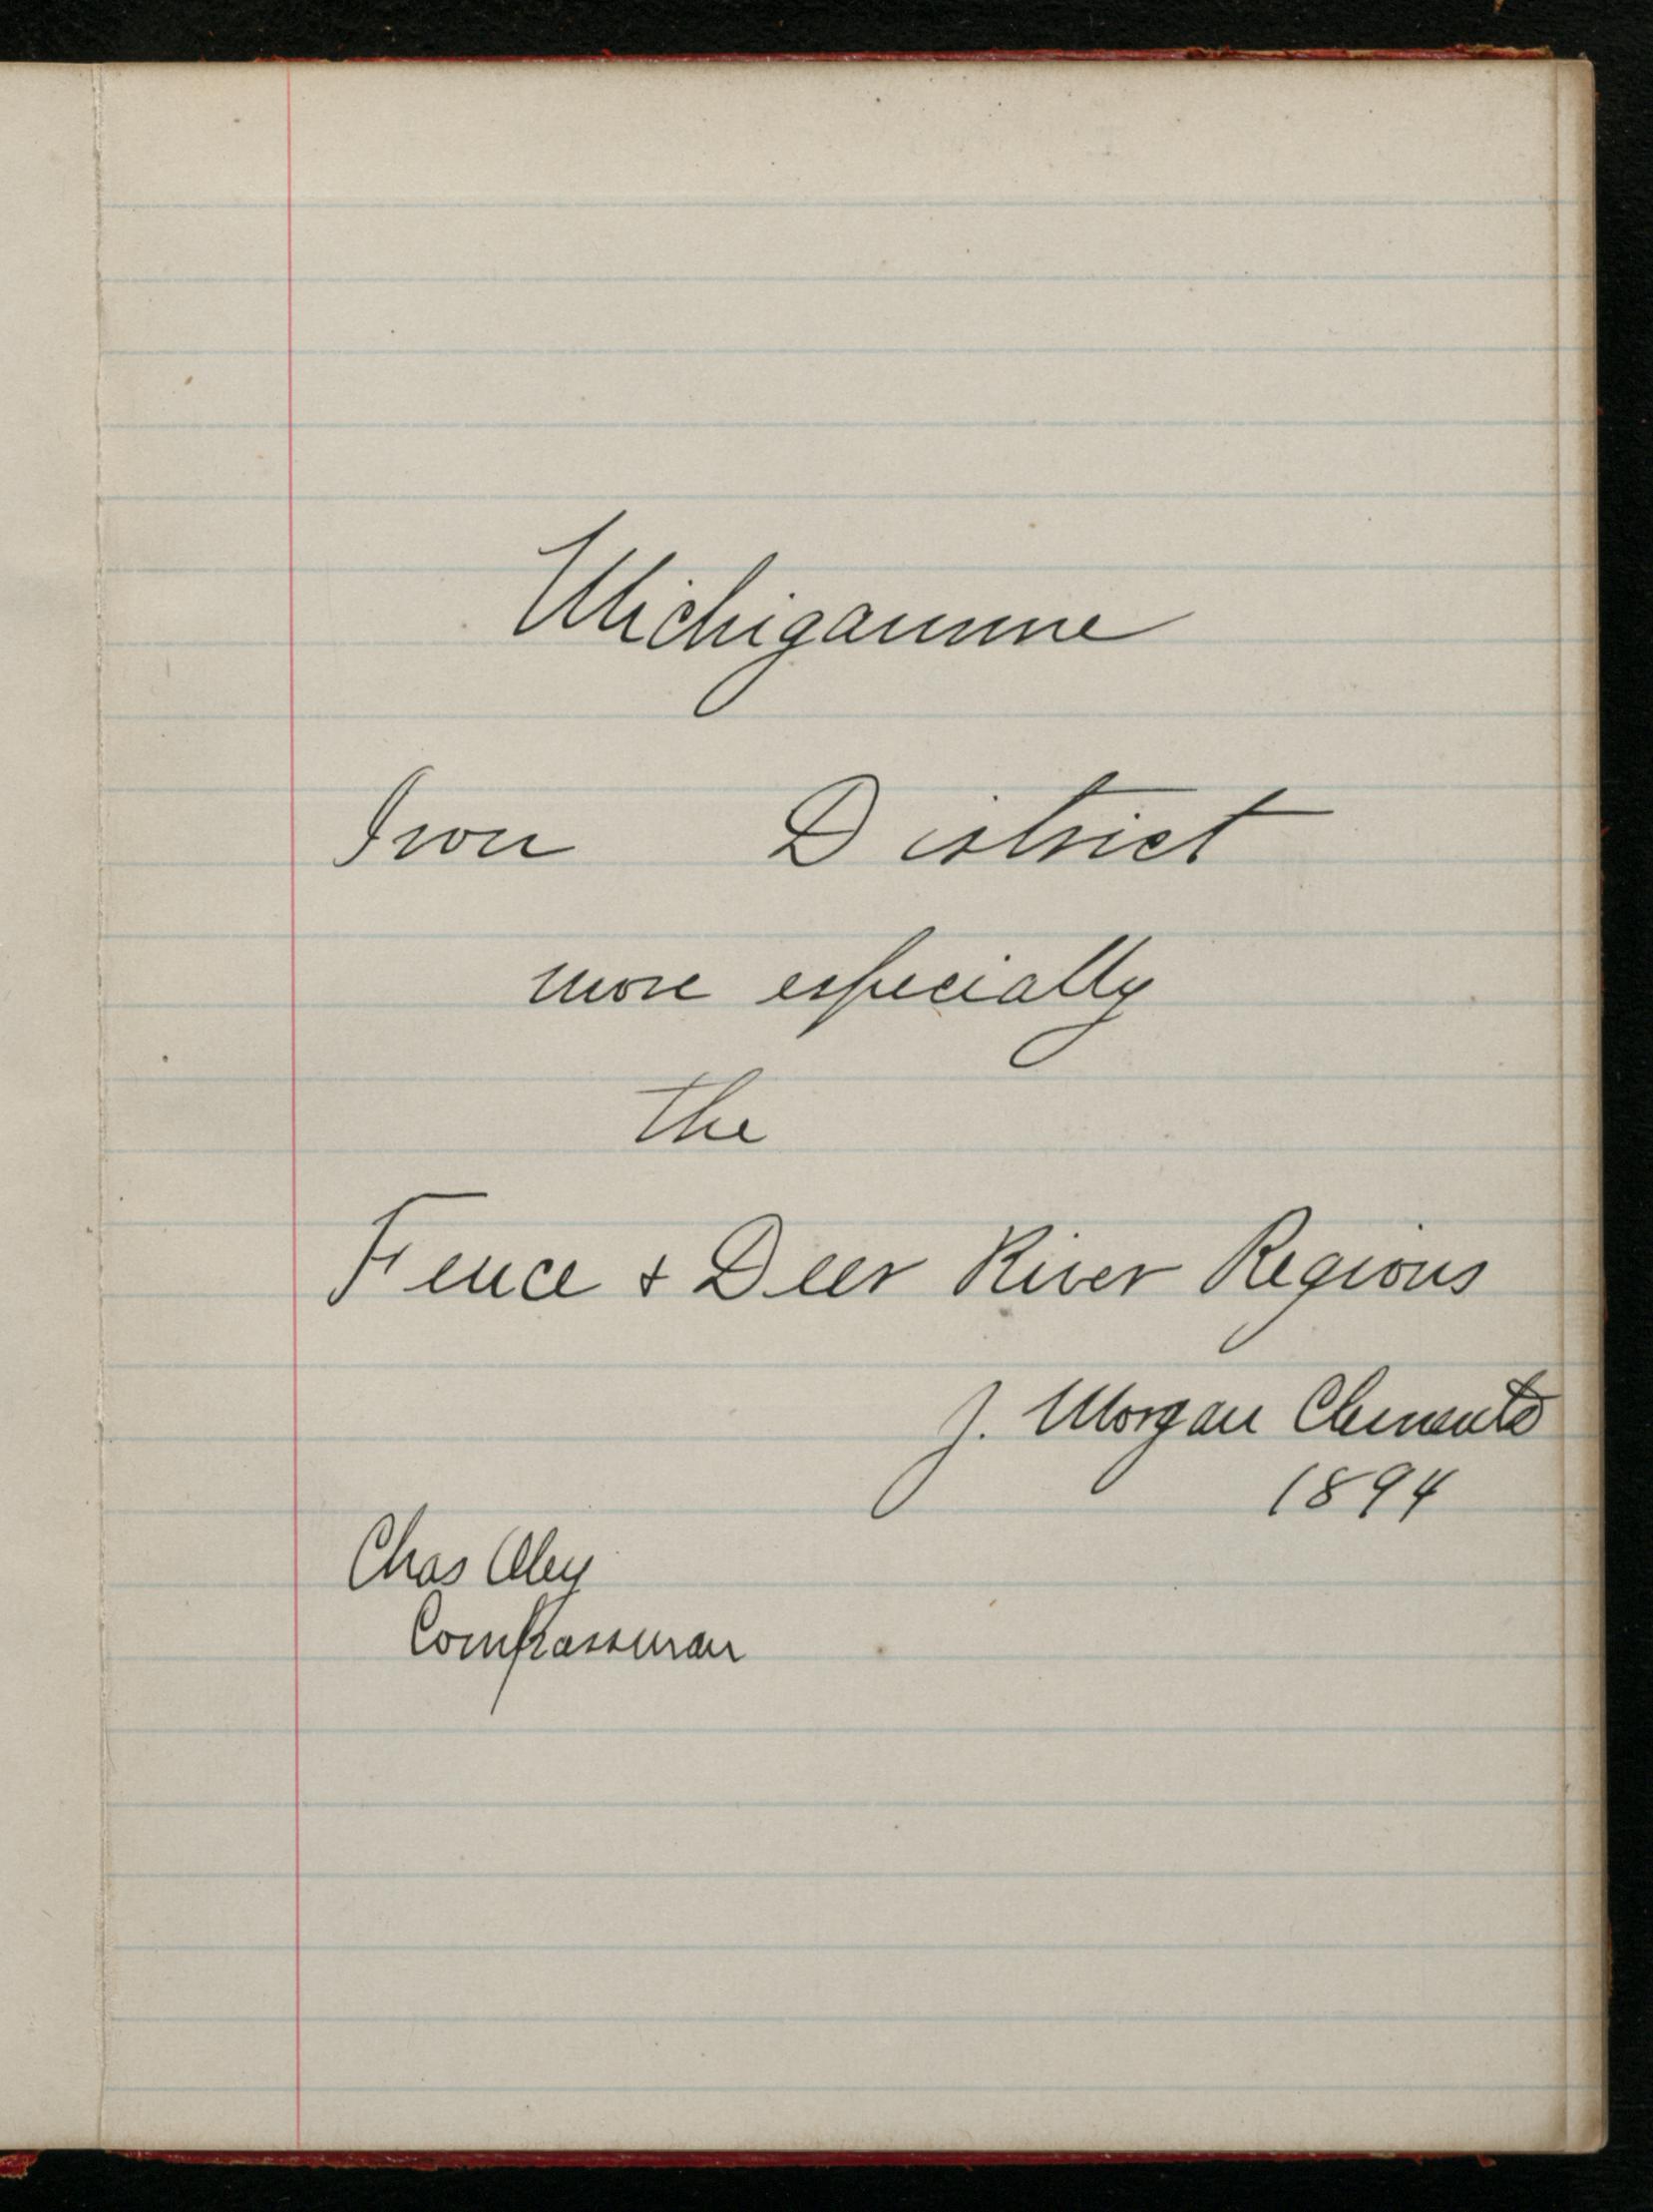 Michigamme
Iron District
more especially
the
Fence & Deer River Regions
J. Morgan Clements
1894
Chas
Compassman